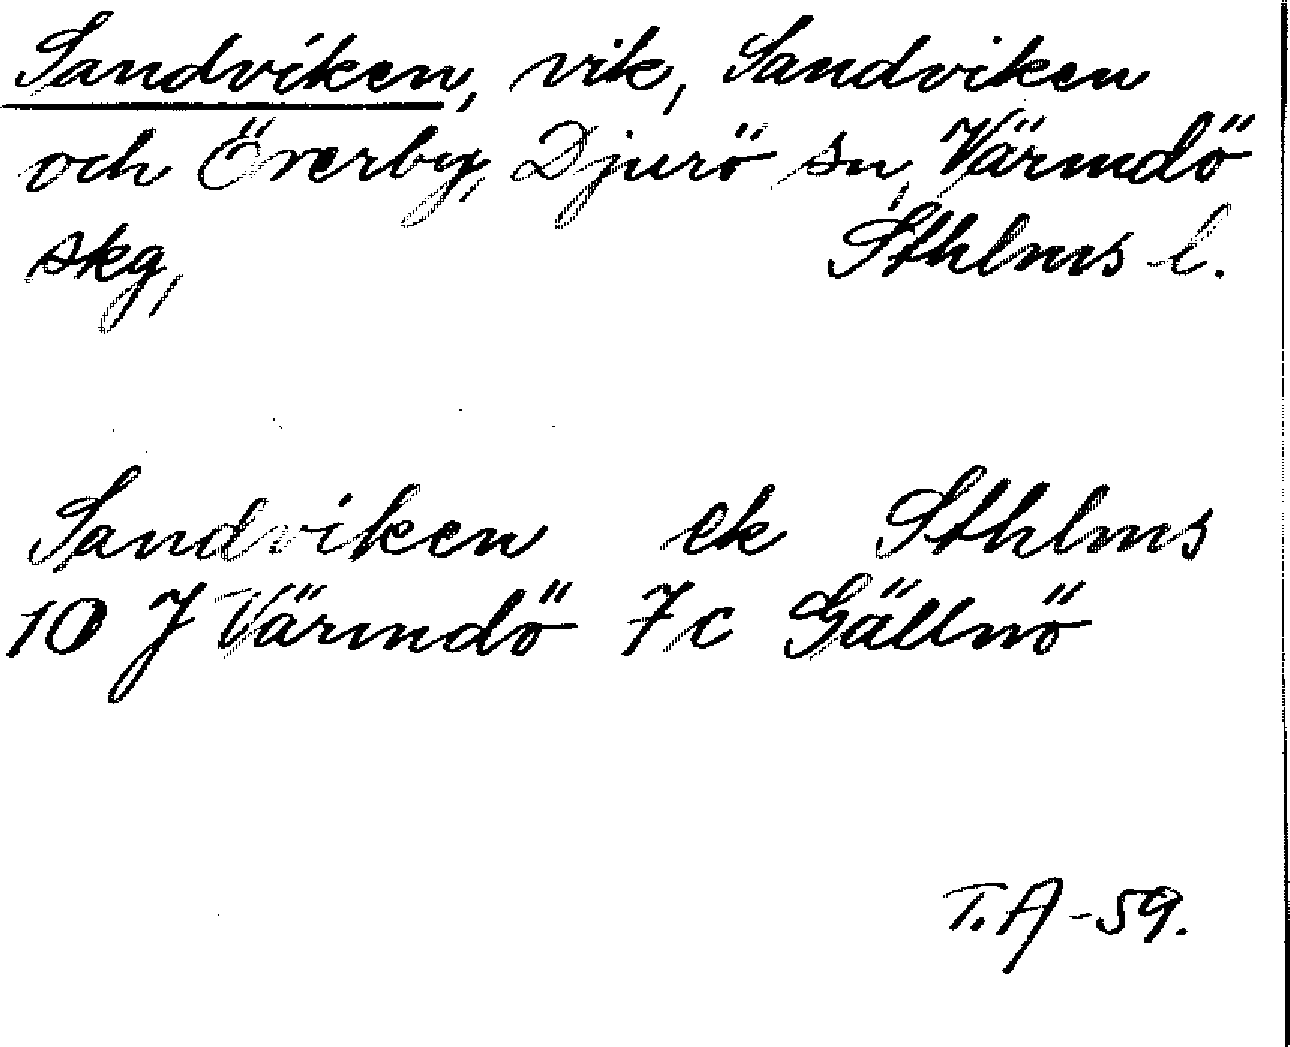 Sandviken, vik, Sandviken
och Överby, Djurö sn, Värmdö
skg, Sthlms l.
Sandviken ek Sthlms
10 J Värmdö 7c Gällnö
T.A -59.